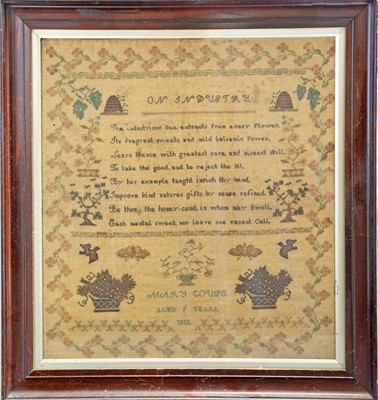 ON INDUSTRY
The industrious Bee extracts from every Flower,
Its fragrant sweets and mild balsamic Power,
Learn thence with greatest care, and nicest skill,
To take the good, and to reject the ill,
By her example taught inrich thy mind,
Improve kind natures gifts, by sense refined,
Be thou the honey-comb, in whom may dwell,
Each mental sweet, nor leave one vacant Cell,
MARY
AGED YEARS